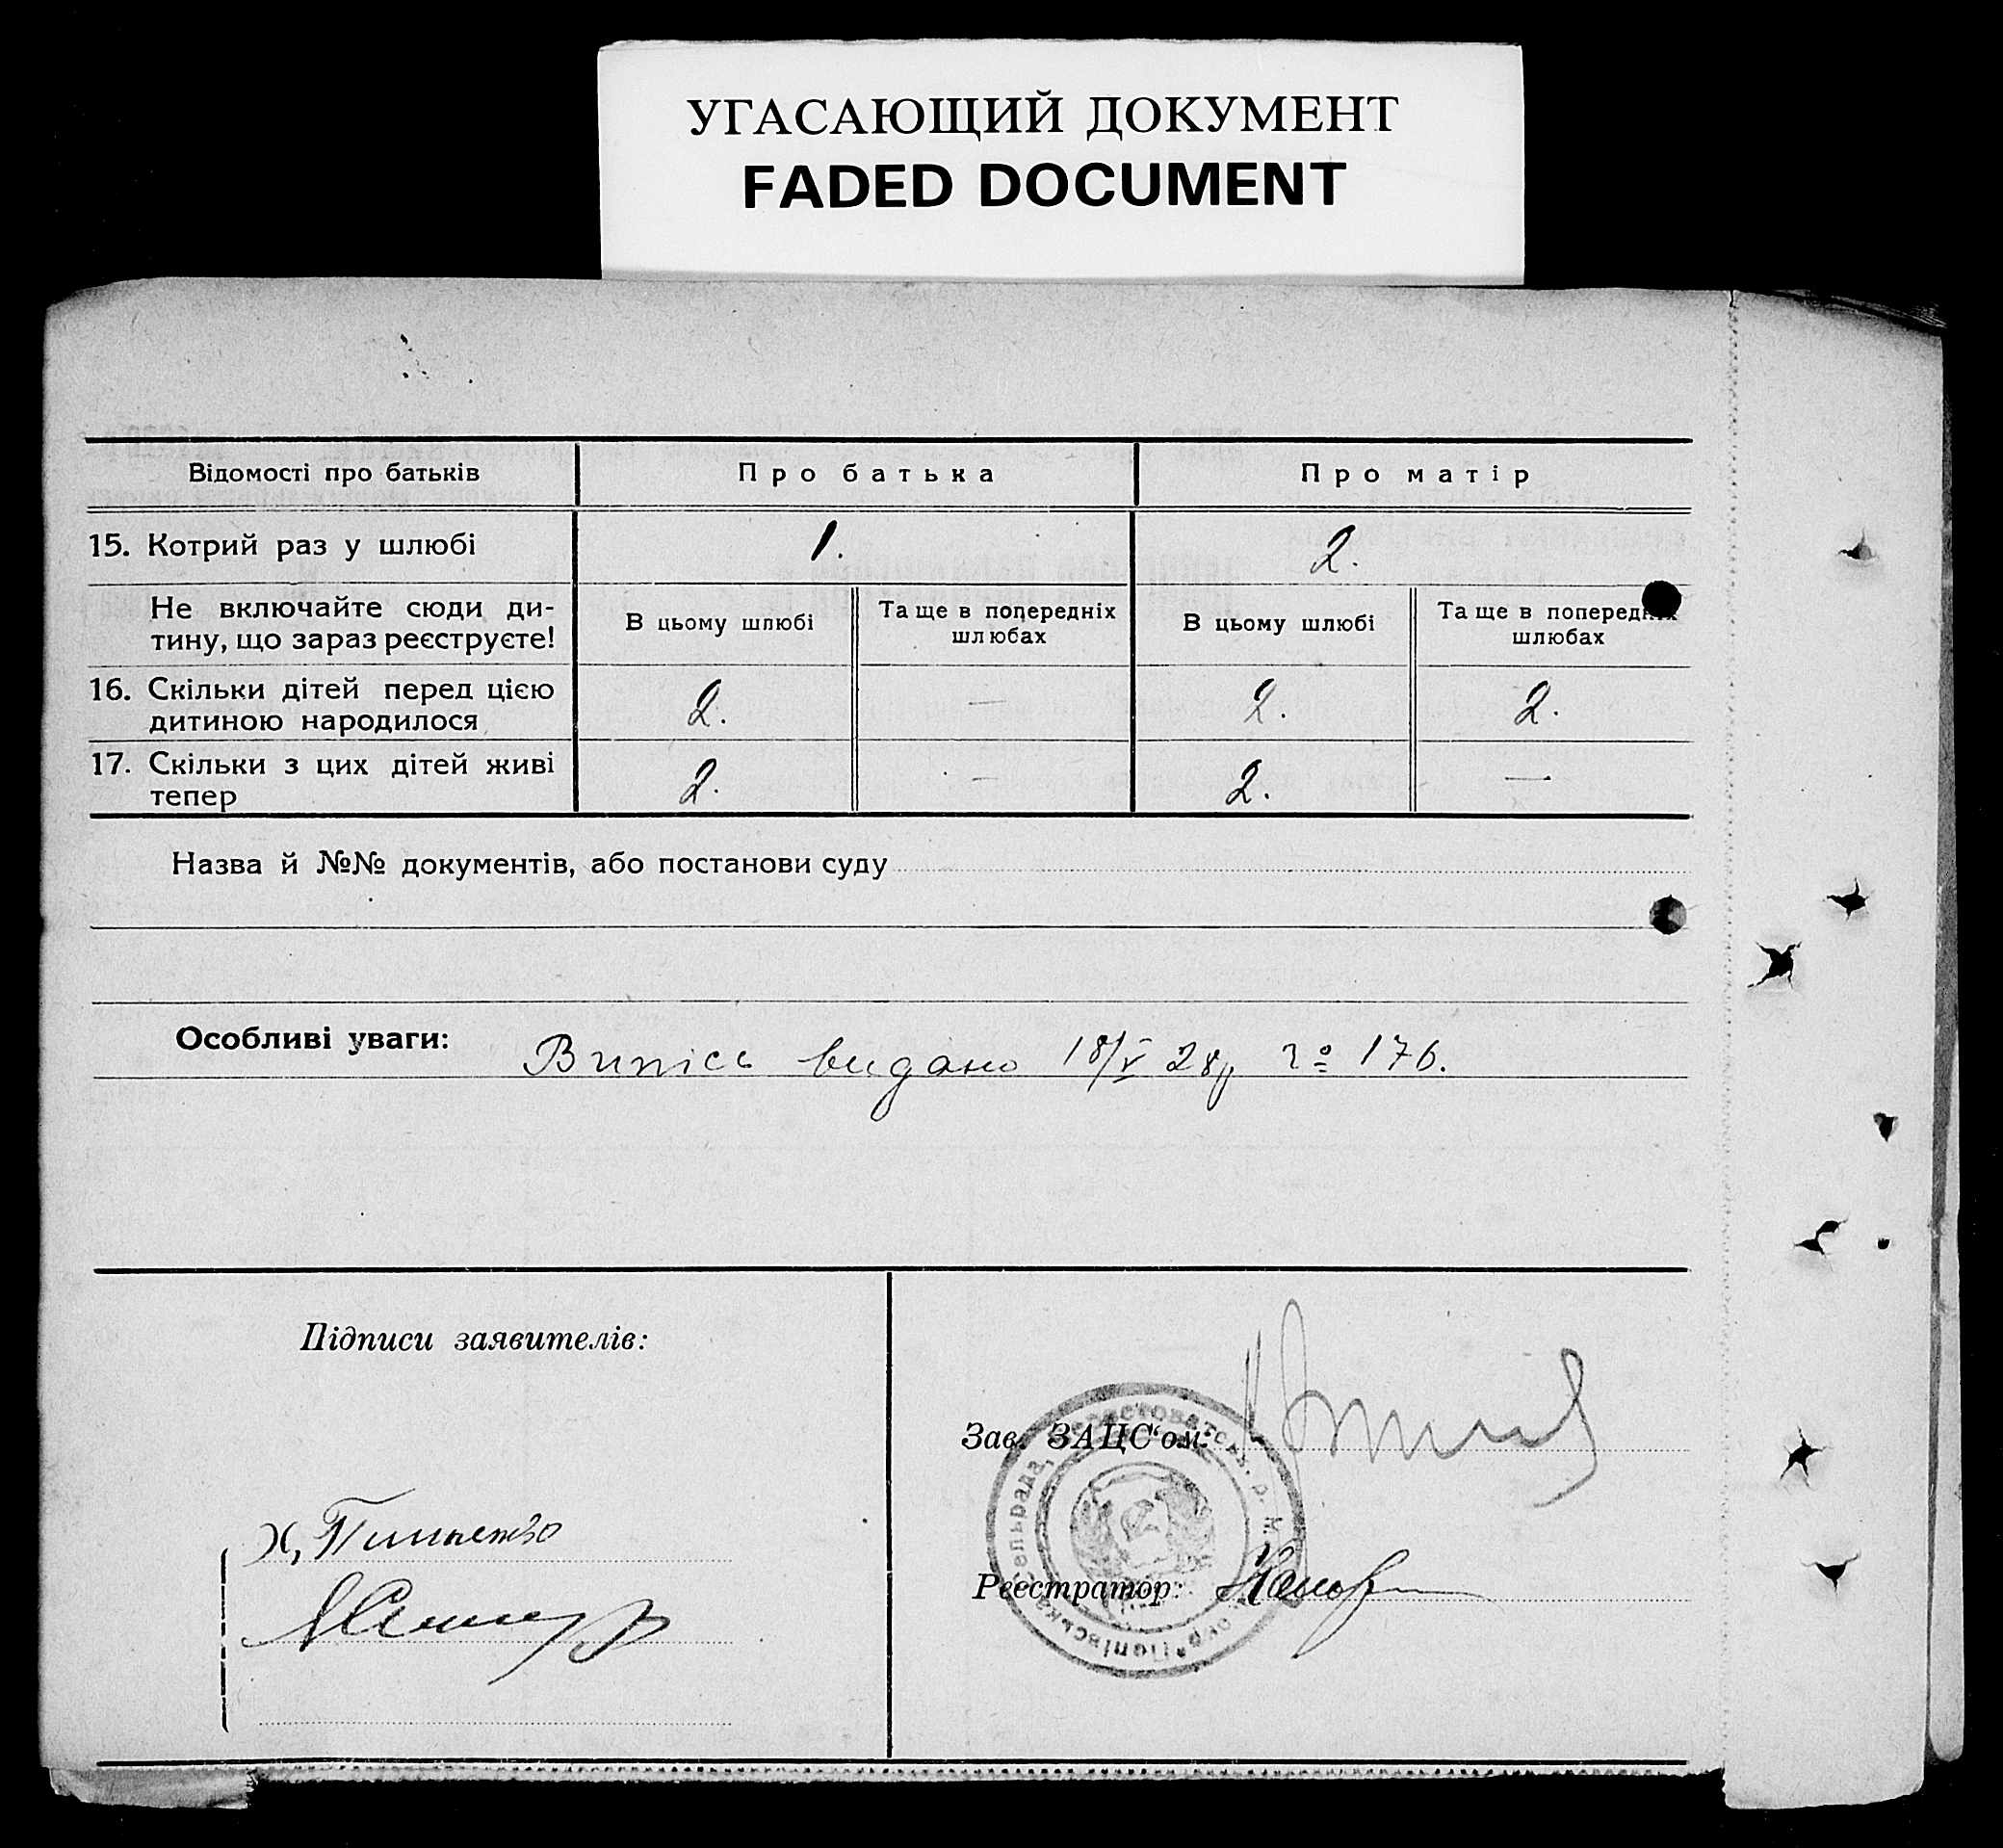 УГАСАЮЩИЙ ДОКУМЕНТ
FADED DOCUMENT
Відомості про батьків
Про батька
Про матір
15. Котрий раз у шлюбі
1.
2.
Не включайте сюди ди-
тину, що зараз реєструєте!
В цьому шлюбі
Та ще в попередніх
шлюбах
В цьому шлюбі
Та ще в попередніх
шлюбах
16. Скільки дітей перед цією
дитиною народилося
2.
—
2.
2.
17. Скільки з цих дітей живі
тепер
2.
—
2.
—
Назва й №№ документів, або постанови суду
Особливі уваги:
Випісь видано 18/V 28р № 176.
Підписи заявителів:
Зав. ЗАЦС'ом:
Реєстратор:
сельрада,